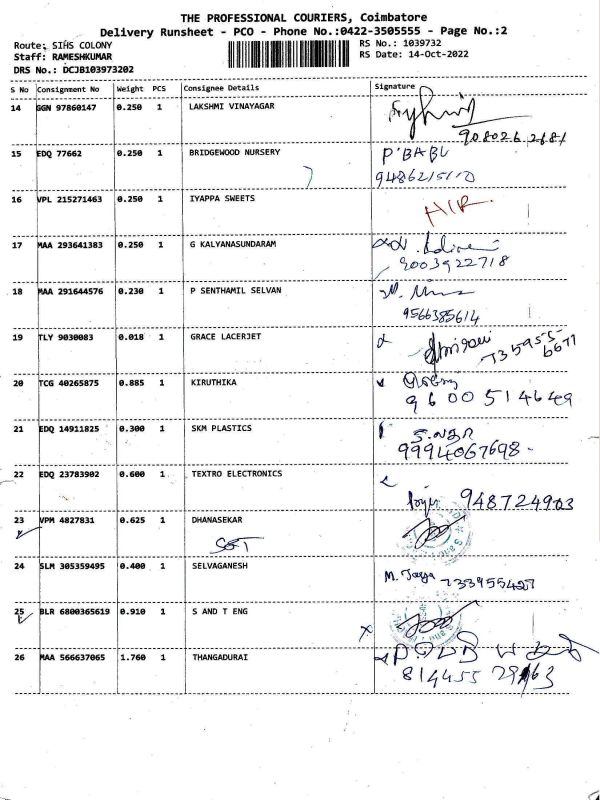 THE PROFESSIONAL COURIERS, Coimbatore
Delivery Runsheet - PCO - Phone No.:0422-3505555 - Page No.:2
Route: SIHS COLONY
RS No.: 1039732
Staff: RAMESHKUMAR
RS Date: 14-Oct-2022
DRS No.: DCJB103973202
S No Consignment No Weight PCS Consignee Details Signature
14 GGN 97860147 0.250 1 LAKSHMI VINAYAGAR
908026 2681
15 EDQ 77662 0.250 1 BRIDGEWOOD NURSERY P'BABU
9486215110
16 VPL 215271463 0.250 1 IYAPPA SWEETS
17 MAA 293641383 0.250 1 G KALYANASUNDARAM
9003922718
18 MAA 291644576 0.230 1 P SENTHAMIL SELVAN
9566385614
19 TLY 9030083 0.018 1 GRACE LACERJET
735955
6671
20 TCG 40265875 0.885 1 KIRUTHIKA
9600514649
21 EDQ 14911825 0.300 1 SKM PLASTICS
9994067698
22 EDQ 23783902 0.600 1 TEXTRO ELECTRONICS
948724903
23 VPM 4827831 0.625 1 DHANASEKAR
24 SLM 305359495 0.400 1 SELVAGANESH M. Jayya 733955427
25 BLR 6800365619 0.910 1 S AND T ENG
26 MAA 566637065 1.760 1 THANGADURAI